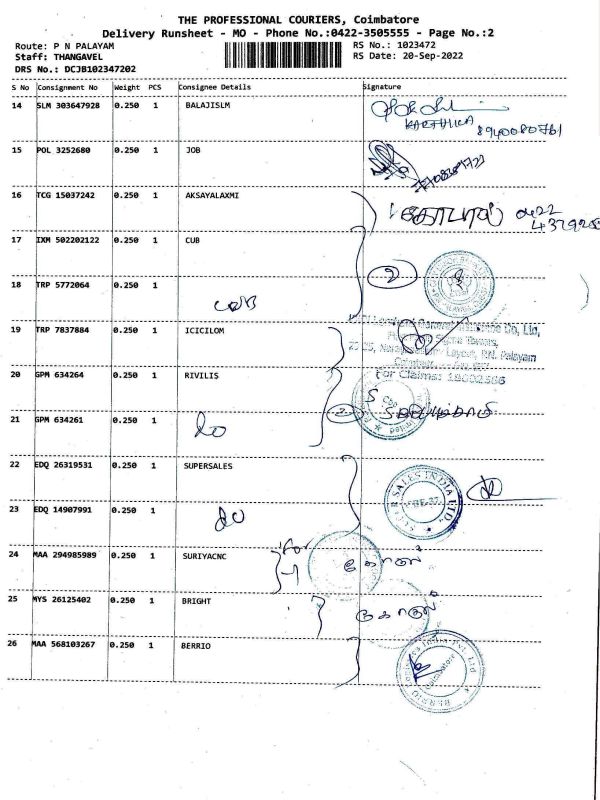 THE PROFESSIONAL COURIERS, Coimbatore
Delivery Runsheet - MO - Phone No.:0422-3505555 - Page No.:2
Route: P N PALAYAM
RS No.: 1023472
Staff: THANGAVEL
RS Date: 20-Sep-2022
DRS No.: DCJB102347202
S No Consignment No Weight PCS Consignee Details Signature
14 SLM 303647928 0.250 1 BALAJISLM
KARTHIKA
8940080761
15 POL 3252680 0.250 1 JOB
16 TCG 15037242 0.250 1 AKSAYALAXMI
கோபால் 0422
17 IXM 502202122 0.250 1 CUB
2
18 TRP 5772064 0.250 1
CUB
19 TRP 7837884 0.250 1 ICICILOM
Towers,
Layout, P.N. Palayam
For Claims: 18002666
20 GPM 634264 0.250 1 RIVILIS
21 GPM 634261 0.250 1
do
2
22 EDQ 26319531 0.250 1 SUPERSALES
SUPER SALES INDIA LTD.
23 EDQ 14907991 0.250 1
do
24 MAA 294985989 0.250 1 SURIYACNC
For
25 MYS 26125402 0.250 1 BRIGHT
26 MAA 568103267 0.250 1 BERRIO
Coimbatore